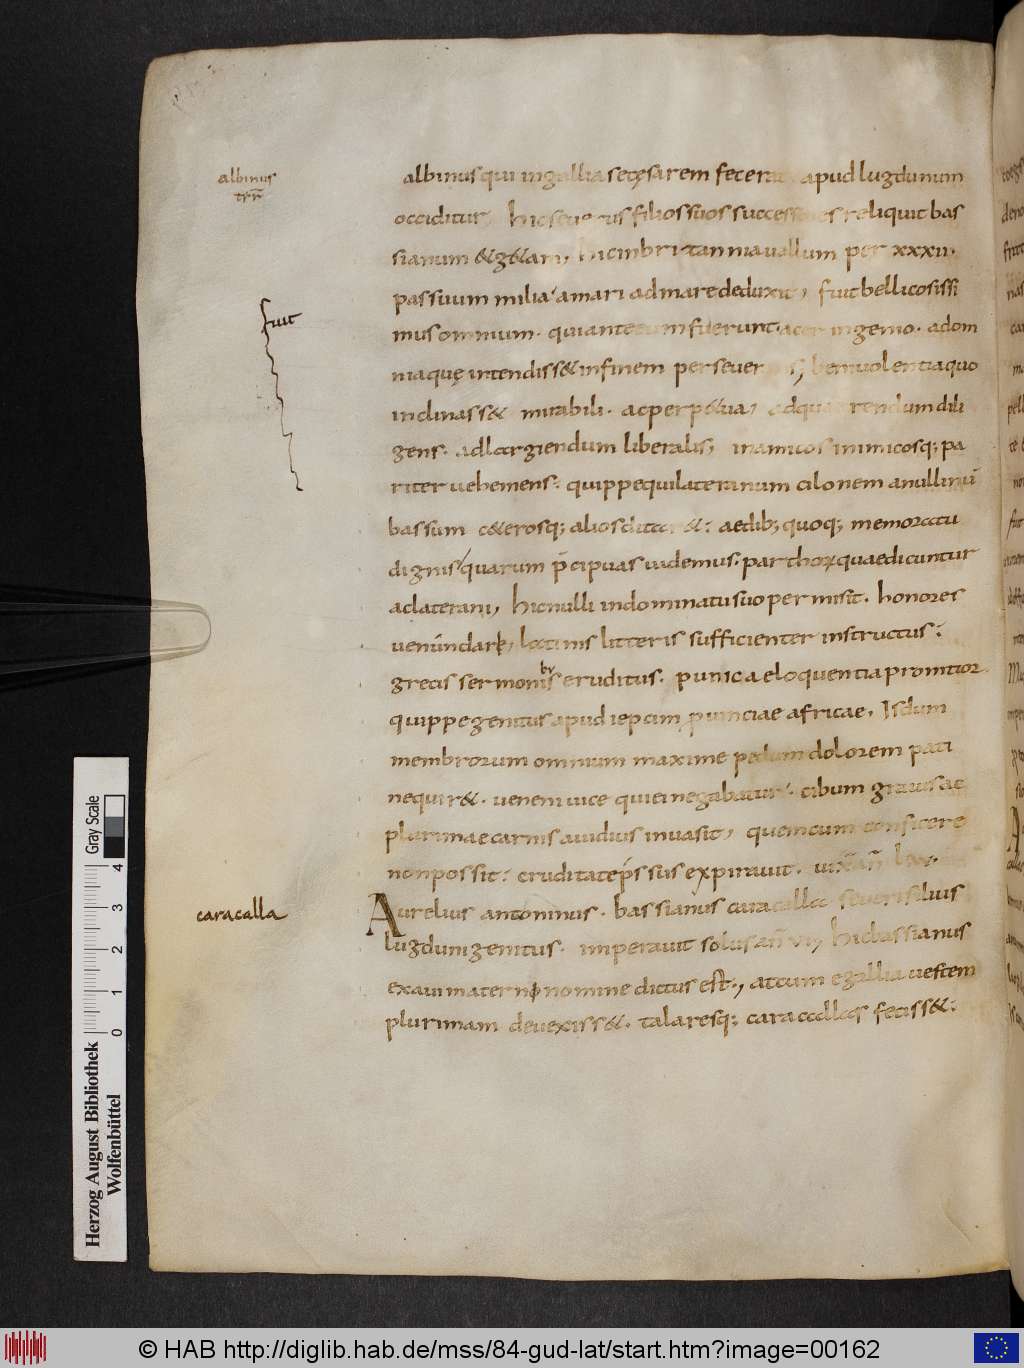 albinus
trn̄
albinus qui in gallia se cęsarem fecerat apud lugdunum
occiditur, hic seuerus filios suos successores reliquit bas
sianum & g&am, hic in britannia uallum per xxxii.
passuum milia a mari ad mare deduxit, fuit bellicosissi
fuit
mus omnium. qui ante eum fuerunt. acer ingenio. ad om
niaquę intendiss& in finem perseuerans; beniuolentia quo
inclinass& mirabili. ac perp&ua, ad quaerendum dili
gens. ad largiendum liberalis, in amicos inimicosq; pa
riter uehemens. quippe qui lateranum cilonem anullinū
bassum c&erosq; alios ditar&: aedib; quoq; memoratu
dignis quarum p̄cipuas uidemus. parthoꝝ quae dicuntur
ac laterani, hic nulli in dominatu suo permisit. honores
uenundari, latinis litteris sufficienter instructus.
grecis sermonibus eruditus. punica eloquentia promtior.
quippe genitus apud lepcim prouinciae africae, Is dum
membrorum omnium maxime pedum dolorem pati
nequir&. ueneni uice qui ei negabatur. cibum grauis ac
plurimae carnis auidius inuasit, quem cum conficere
non possit: cruditate p̄ssus expirauit. uix̄ an̄ lxv.
caracalla
Aurelius antoninus. bassianus caracalla seueri filius
lugduni genitus. imperauit solus an̄ vi, hic bassianus
ex aui materno nomine dictus est., at cum e gallia uestem
plurimam deuexiss&. talaresq; caracallas feciss&:
Herzog August Bibliothek
Wolfenbüttel
Gray Scale
0 1 2 3 4
© HAB http://diglib.hab.de/mss/84-gud-lat/start.htm?image=00162